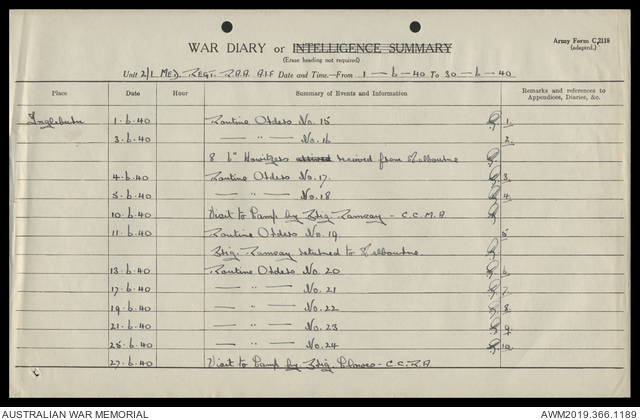 Army Form C.2118
(adapted.)
WAR DIARY or INTELLIGENCE SUMMARY
(Erase heading not required)
Unit 2/1 MED. REGT. R.A.A. A.I.F Date and Time.—From 1 — 6 — 40 To 30 — 6 — 40
Place Date Hour Summary of Events and Information Remarks and references to Appendices, Diaries, &c.
Ingleburn 1.6.40 Routine Orders No. 15 1.
3.6.40 — " — No. 16 2.
8 6" Howitzers received from Melbourne
4.6.40 Routine Orders No. 17. 3.
5.6.40 — " — No. 18 4.
10.6.40 Visit to Camp by Brig Ramsay - C.C.M.A.
11.6.40 Routine Orders No. 19. 5
Brig. Ramsay returned to Melbourne.
13.6.40 Routine Orders No. 20 6.
17.6.40 — " — No. 21 7.
19.6.40 — " — No. 22 8.
21.6.40 — " — No. 23 9.
25.6.40 — " — No. 24 10.
27.6.40 Visit to Camp by Brig. - C.C.R.A.
AUSTRALIAN WAR MEMORIAL AWM2019.366.1189